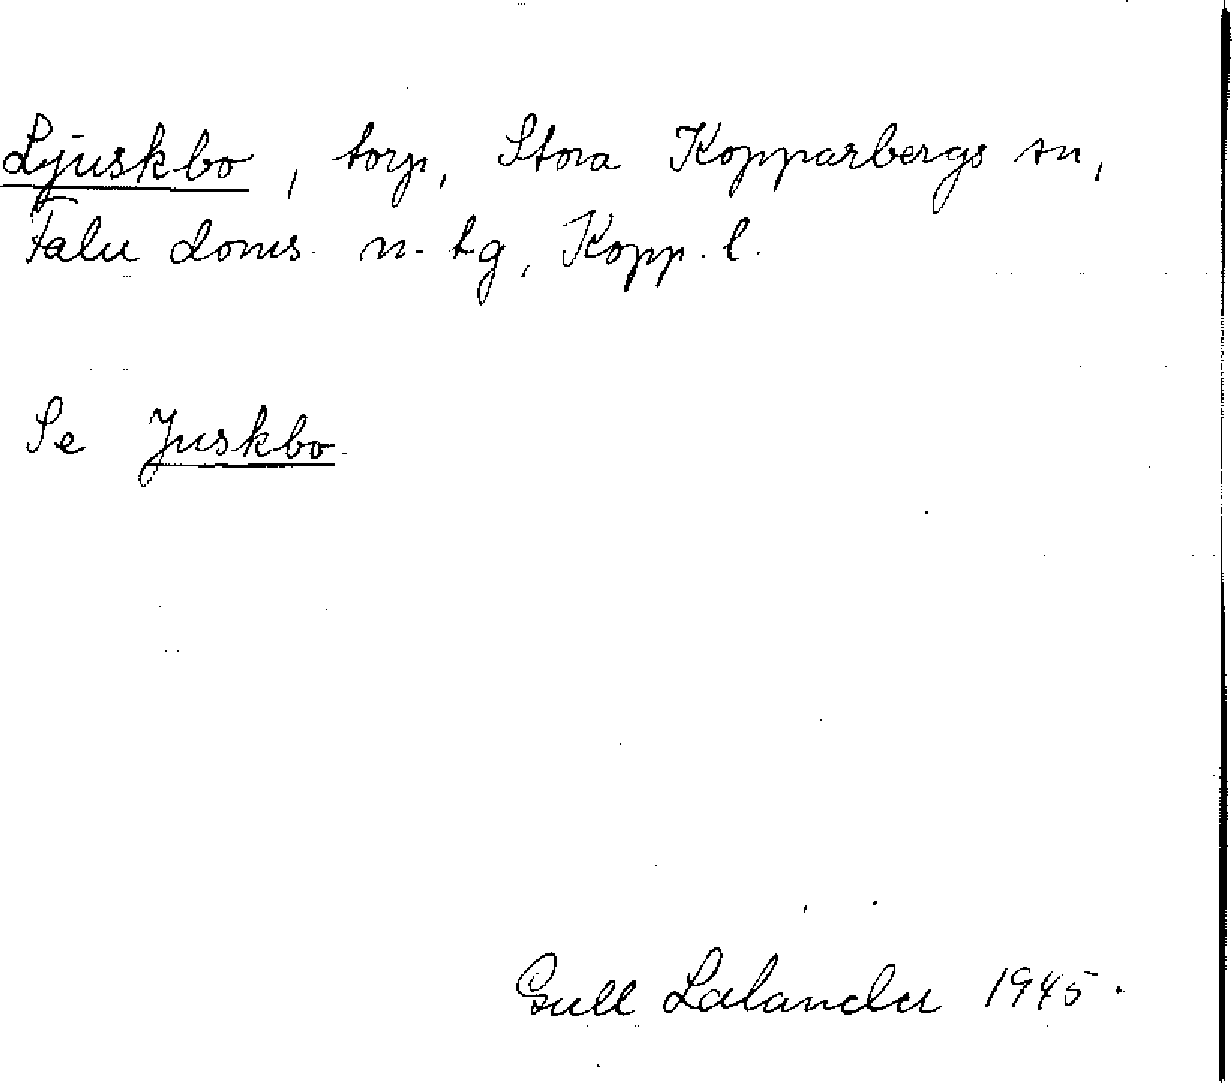 Ljuskbo, torp, Stora Kopparbergs sn,
Falu doms. n. tg, Kopp. l.
Se Juskbo.
Gull Lalander 1945.